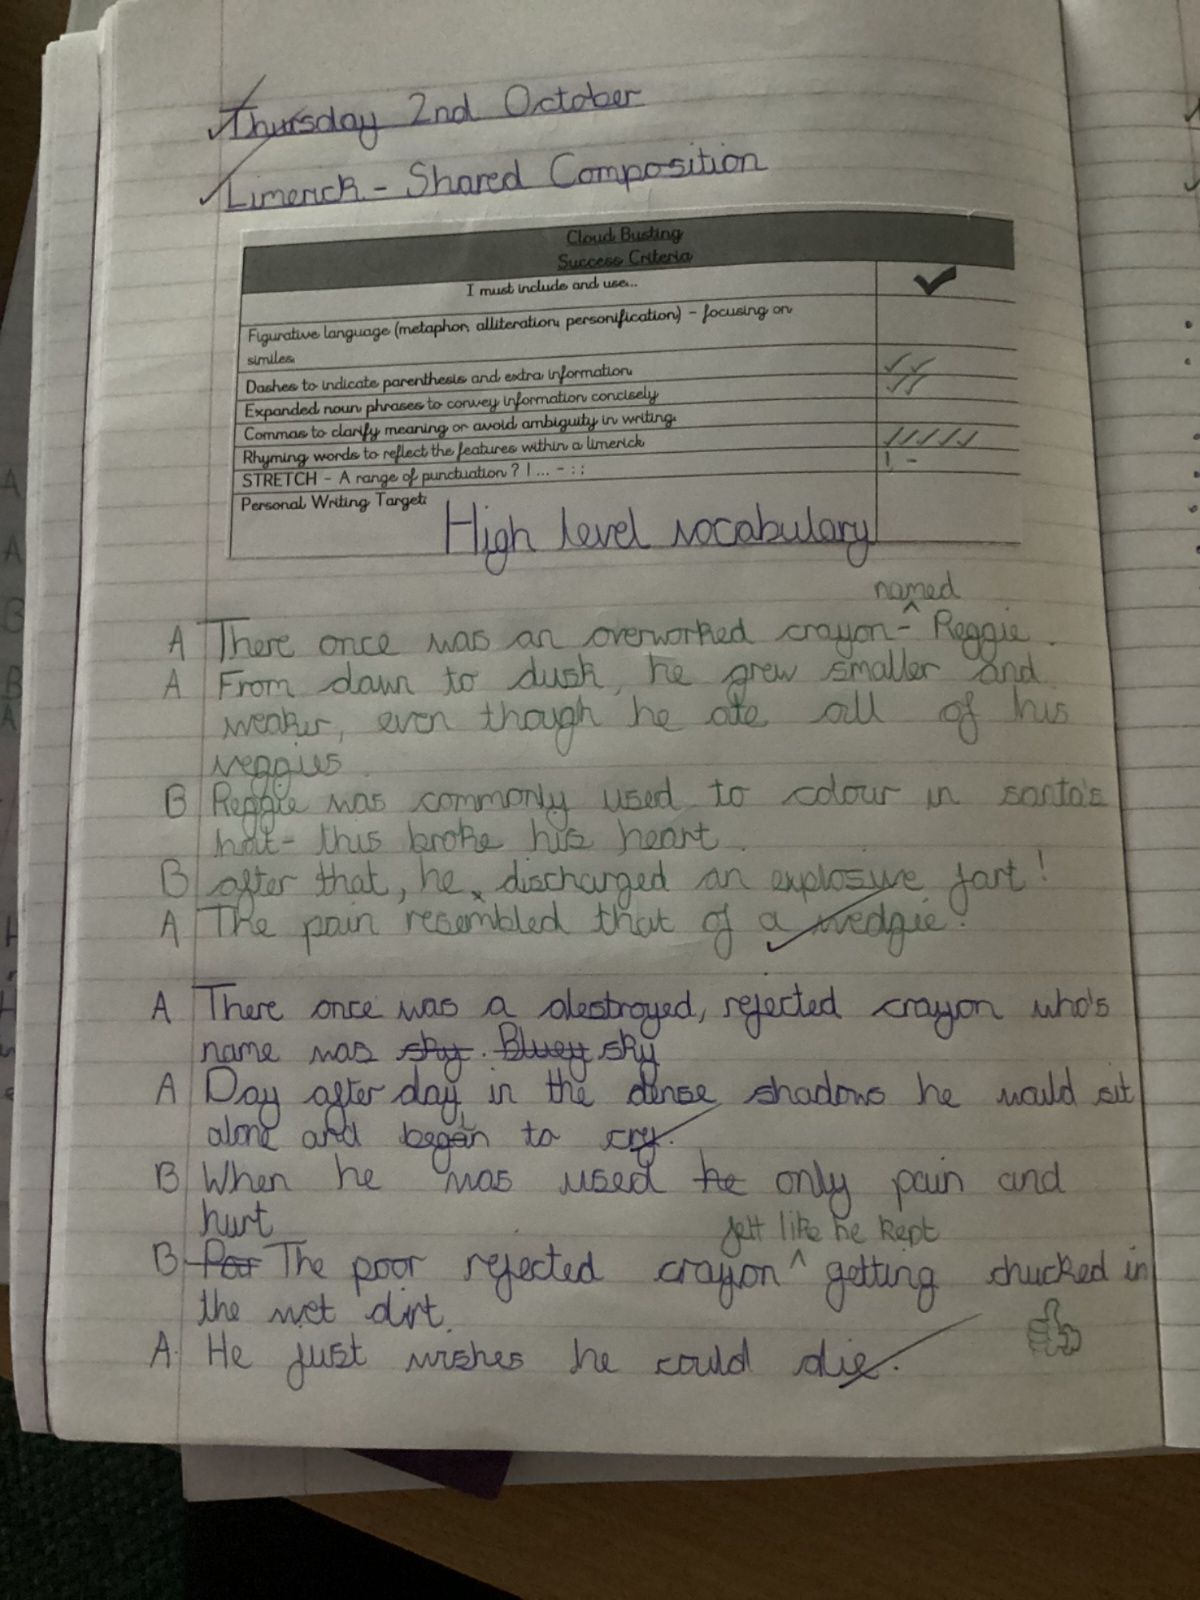 Thursday 2nd October
Limerick - Shared Composition
Cloud Busting
Success Criteria
I must include and use...
Figurative language (metaphor, alliteration, personification) - focusing on
similes.
Dashes to indicate parenthesis and extra information.
Expanded noun phrases to convey information concisely
Commas to clarify meaning or avoid ambiguity in writing.
Rhyming words to reflect the features within a limerick
STRETCH - A range of punctuation ? ! ... - : ;
! -
Personal Writing Target:
High level vocabulary
named
A There once was an overworked crayon - ^ Reggie.
A From dawn to dusk, he grew smaller and
weaker, even though he ate all of his
veggies.
B Reggie was commonly used to colour in santa's
hat - this broke his heart.
B after that, he discharged an explosive fart!
A The pain resembled that of a wedgie.
A There once was a destroyed, rejected crayon who's
name was sky. Bluey sky
A Day after day, in the dense shadows he would sit
alone and began to cry.
B When he was used he only pain and
hurt
felt like he kept
B Por The poor rejected crayon ^ getting chucked in
the wet dirt.
A He just wishes he could die.